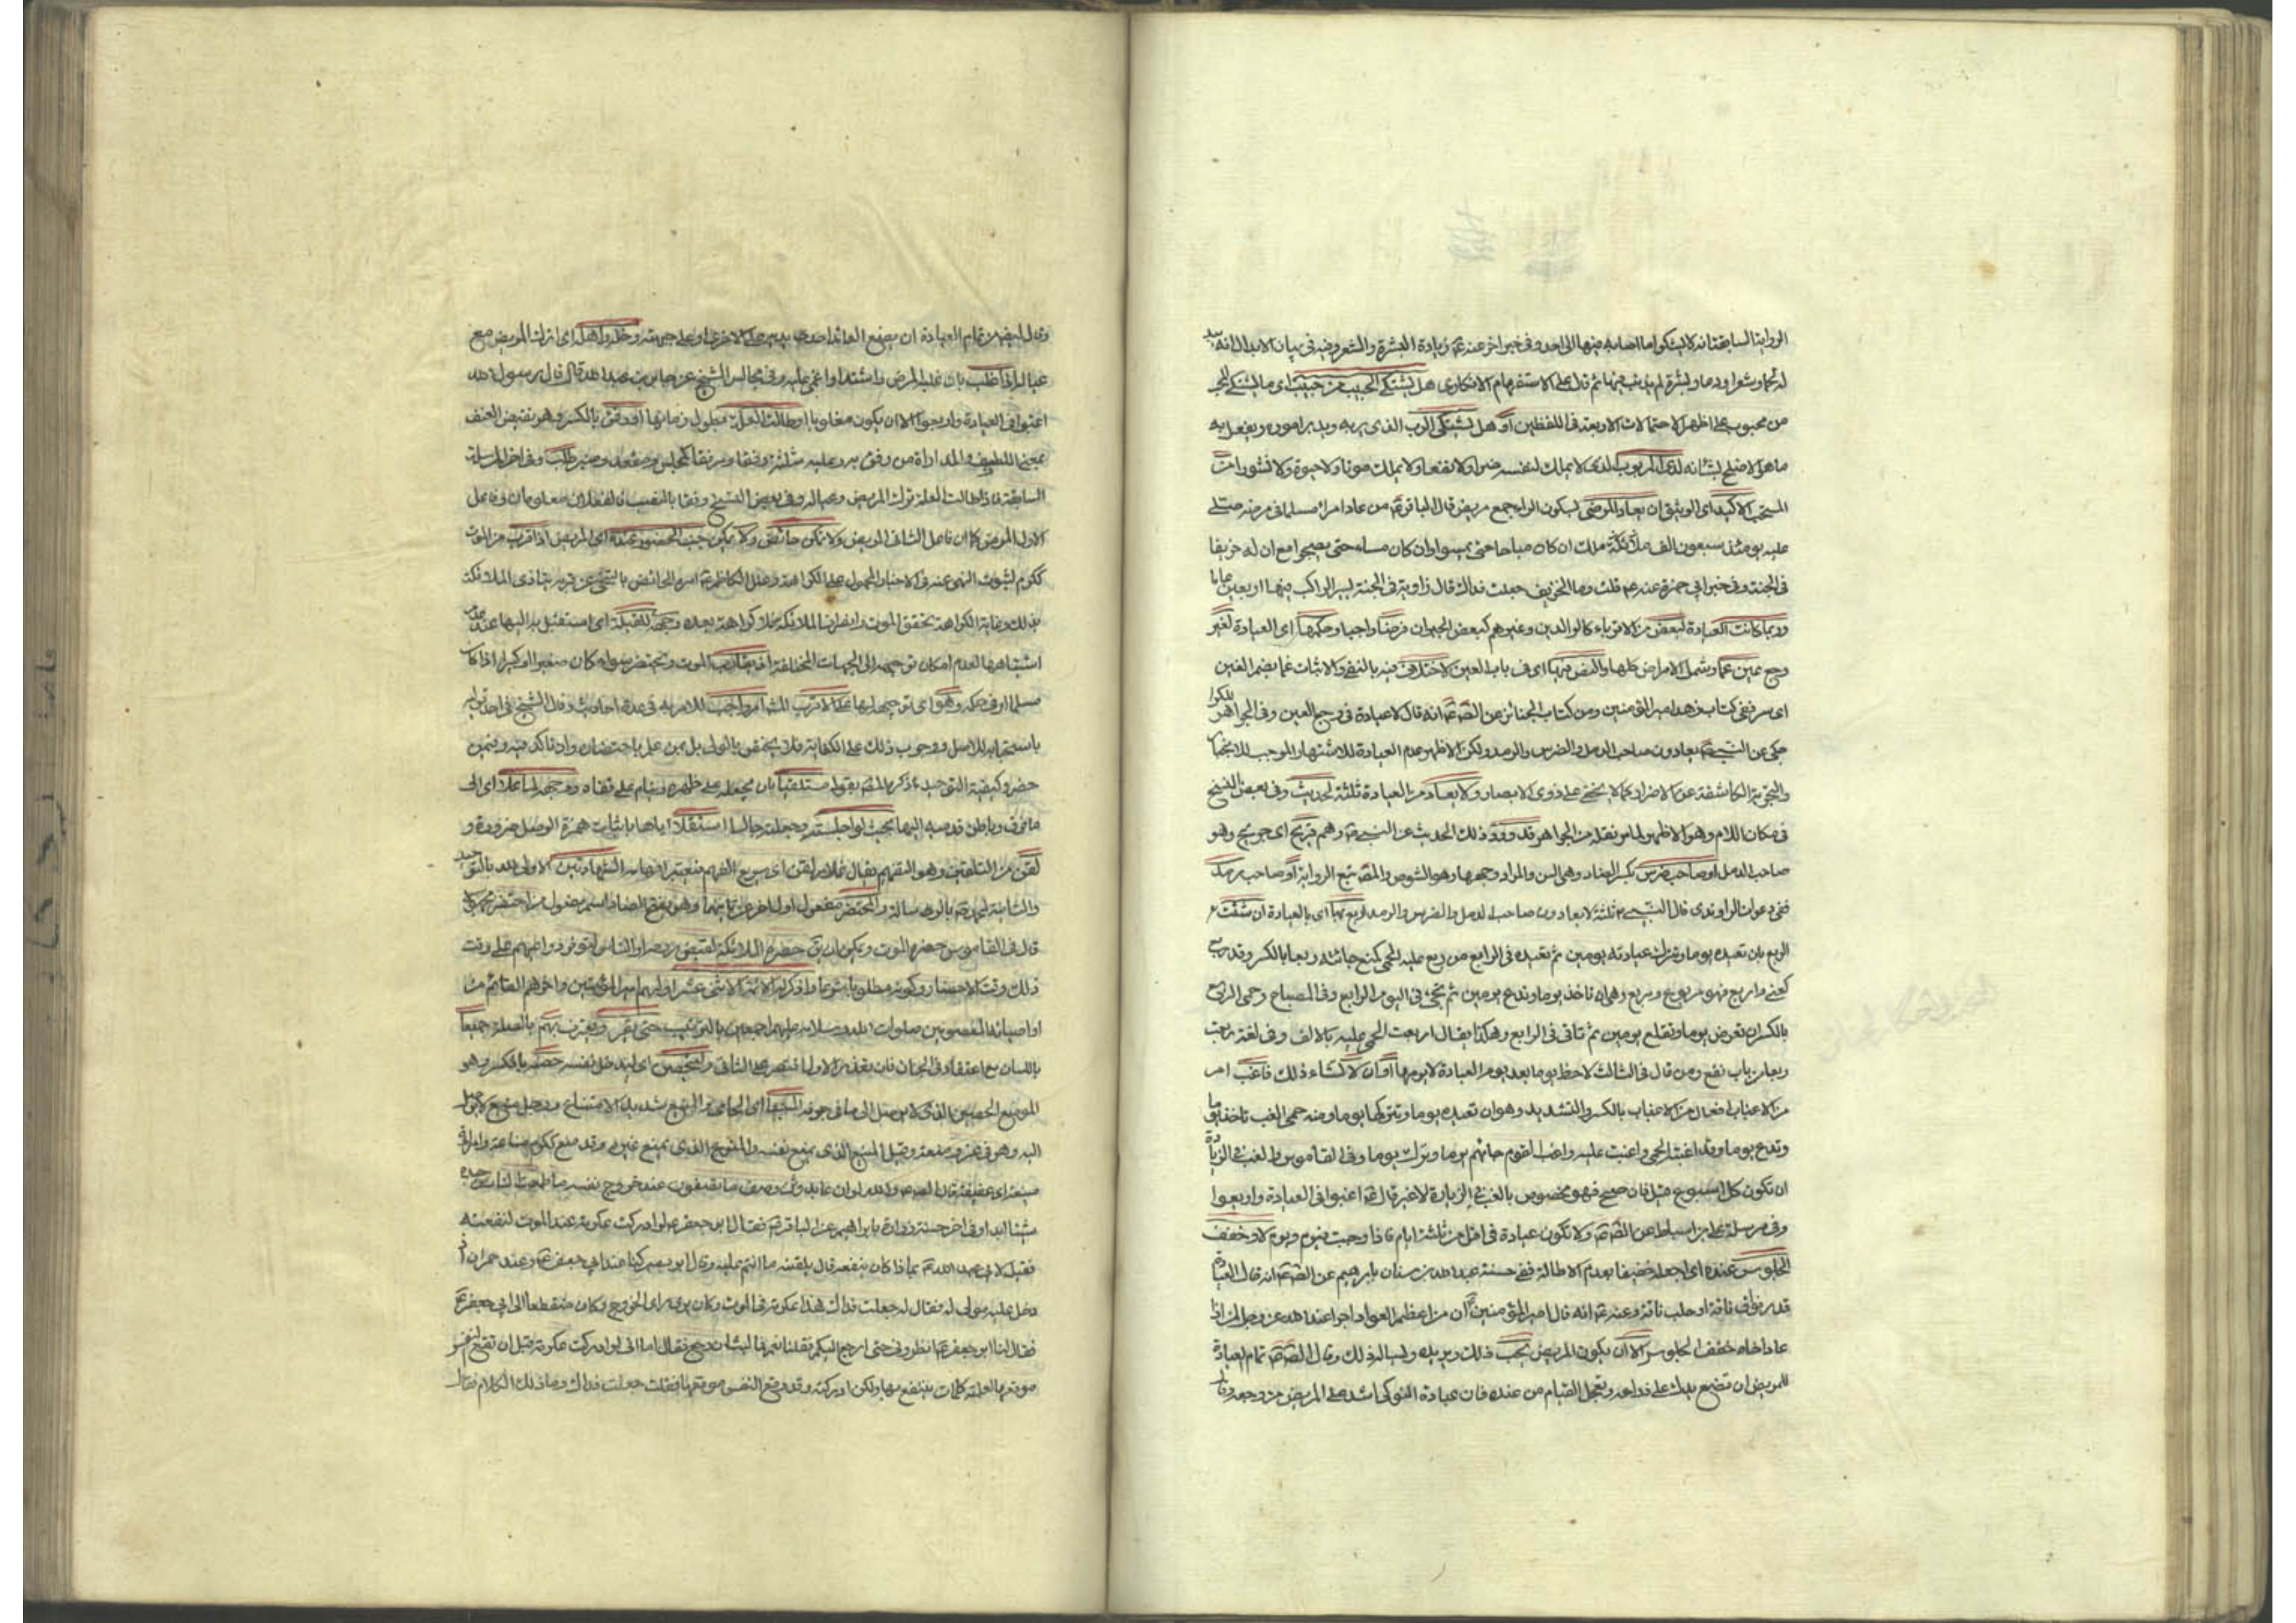 الروايتا السابقتا انه لا يشكوا ما اصابه فيها الى احد وفى خبر اخر عنه ع زيادة البشرة والشعر وفيه فى بيان الابدال انه يبدله
لحما وشعرا ودما وبشرة لم يذنب فيها ثم قال على الاستفهام الانكارى هل يشتكى الحبيب من حبيب اى ما يشتكى
من محبوب على اظهر الاحتمالات الاربعة فى اللفظين او هل يشتكى الرب الذى يربه ويدبر اموره ويفعل به
ما هو الاصلح بشانه لدى المربوب الذى لا يملك لنفسه ضرا ولا نفعا ولا يملك موتا ولا حيوة ولا نشورا
المستحب الاكيد اى الوثيق ان يعاد المرضى ليكون الواو جمع مريض قال الباقر ع من عاد امرا مسلما فى مرضه صلى
عليه يومئذ سبعون الف ملك ان كان صباحا حتى يمسوا وان كان مساء حتى يصبحوا مع ان له خريفا
فى الجنة وفى خبر ابى حمزة عنه ع قلت وما الخريف جعلت فداك قال زاوية فى الجنة يسير الراكب فيها اربعين عاما
وربما كانت العيادة لبعض من الاقرباء كالوالدين وغيرهم كبعض الجيران فرضا واجبا وحكمها اى العيادة لغير
وجع عين عما وشمل الامراض كلها والنص فيها اى فى باب العين لاختلاف فيه بالنفى والاثبات غما بضم الغين
اى سر ففى كتاب زهد امير المؤمنين ومن كتاب الجنائز عن الص ع انه قال لا عيادة فى وجع العين وفى الجواهر
حكى عن النبى ص يعادون صاحب الدمل والضرس والرمد ولكن الاظهر عدم العيادة للاشتهار الموجب للانجبار
والتجربة الكاشفة عن الاضرار بما لا يخفى على ذوى الابصار ولا يعاد من العيادة ثلثة لحديث وفى بعض النسخ
فى مكان اللام وهو الاظهر لما سر نقله من الجواهر قد ورد ذلك الحديث عن النبى ص وهم قريح اى جريح وهو
صاحب الدمل او صاحب ضرس بكسر الضاد وهى السن والمراد وجعها وهو الشوص والمص تبع الرواية او صاحب رمد
ففى دعوات الراوندى قال النبى ص ثلثة لا يعادون صاحب الدمل والضرس والرمد اربع بها اى بالعيادة ان شئت
الربع بان تعيده يوما وتترك عيادته يومين ثم تعيده فى الرابع من ربع عليه الحمى كمنع جائته ربعا بالكسر وقد ربع
كعنى واربع فهو مربوع ومربع وهى ان تاخذ يوما وتدع يومين ثم تجئ فى اليوم الرابع وفى المصباح وحمى الربع
بالكسر ان تعرض يوما وتقلع يومين ثم تاتى فى الرابع وهكذا يقال اربعت الحمى عليه بالالف وفى لغة ربعت
ربعا من باب نفع ومن قال فى الثالث لاحظ يوما بعد يوم العيادة لا يومها او ان لا تشاء ذلك فاغب امر
من الاغباب افعال من الاغباب بالكسر والتشديد وهو ان تعيده يوما وتتركها يوما ومنه حمى الغب تاخذ يوما
وتدع يوما وقد اغبت الحمى واغبت عليه واغب القوم جائهم يوما وترك يوما وفى القاموس والغب فى الزيارة
ان تكون كل اسبوع قيل فان صح فهو مخصوص بالغب فى الزيارة لا غير قال ع اغبوا فى العيادة واربعوا
وفى مرسلة على بن اسباط عن الص ع ولا تكون عيادة فى اقل من ثلثة ايام فاذا وجبت فيوم ويوم لا وخفف
الجلوس عنده اى اجعله خفيفا بعدم الاطالة ففى حسنة عبد الله بن سنان بابرهيم عن الص ع انه قال العيادة
قدر فواق ناقة او حلب ناقة وعنه ع انه قال امير المؤمنين ان من اعظم العواد اجرا عند الله عز وجل لمن اذا
عاد اخاه خفف الجلوس الا ان يكون المريض يحب ذلك ويريده ويساله ذلك وقال الص ع تمام العيادة
للمريض ان تضع يدك على ذراعه وتعجل القيام من عنده فان عيادة النوكى اشد على المريض من وجعه وقال
وقال ايض من تمام العيادة ان يضع العائد احدى يديه على الاخرى او على جبهته وخله واهله اى اترك المريض مع
عياله اذا غلب بان غلبه المرض واشتد او اغمى عليه وفى مجالس الشيخ عن جابر بن عبد الله قال قال رسول الله
اغبوا فى العيادة واربعوا الا ان يكون مغلوبا او طالت العلة بطول زمانها اذ رفق بالكسر وهو نقيض العنف
بمعنى التلطيف والمداراة من رفق به وعليه مثلثة رفقا ومرفقا كمجلس ومقعد ومنبر طلب وفى اخر المرسلة
السابقة فاذا طالت العلة ترك المريض وعياله وفى بعض النسخ رفقا بالنصب فالفعلان معلومان وفاعل
الاول المرض كما ان فاعل الثانى المريض ولا تكن حائض ولا يكون جنب الحضور عنده اى المريض اذا قرب من الموت
ككرم لثبوت النهى عنه فى الاخبار المحمول على الكراهة وعلل الكاظم ع امره الحائض بالتنحى عن قربه بتاذى الملائكة
بذلك وغاية الكراهة تحقق الموت وانصراف الملائكة فلا كراهة بعده وجهه للقبلة اى استقبل به اليها عند عدم
اشتباهها لعدم امكان توجيهه الى الجهات المختلفة اذ يقارب الموت ويحتضر سواء كان صغيرا او كبيرا اذا كان
مسلما او فى حكمه وهو اى توجيهه اليها على الاقرب المشهور واجب للامر به فى عدة احاديث وقال الشيخ فى احد قوليه
باستحبابه للاصل ووجوب ذلك على الكفاية فلا يختص بالولى بل بمن علم باحتضاره وان تاكد فيه وفيمن
حضر وكيفية التوجيه ذكره المص بقوله مستلقيا بان يجعله على ظهره وينام على قفاه ووجهه لما علا اى الى
ما فوق وباطن قدميه اليها بحيث لو اجلسته وجعلته جالسا استقبلا اياها باثبات همزة الوصل ضرورة و
لقن من التلقين وهو التفهيم يقال غلام لقن اى سريع الفهم فيعتبر افهام الشهادتين الاولى لله بالتوحيد
والثانية لمحمد ص بالرسالة والمحتضر مفعول اول اخر عن ثانيهما وهو بفتح الضاد اسم مفعول من احتضر مجهولا
قال فى القاموس حضره الموت ويمكن ان يق حضره الملائكة لقبض روحه او الناس لتوفر دواعيهم على وقت
ذلك وقت الاحتضار وكونه مطلوبا شرعا واذكر له الائمة الاثنى عشر اولهم امير المؤمنين واخرهم القائم من
اوصيائه المعصومين صلوات الله وسلامه عليهم اجمعين بالترتيب حتى يقر ويعترف بهم بالصلة جميعا
باللسان مع اعتقاد فى الجنان فان تعذر الاول اقتصر على الثانى وليحصن اى ليدخل نفسه حصنه بالكسر وهو
الموضع الحصين الذى لا يوصل الى ما فى جوفه المنيعا اى الحامى من المنع شديد الامتناع ورجل منيع لا يوصل
اليه وهو فى عز ومنعة وقيل المنيع الذى يمنع نفسه والمنوع الذى يمنع غيره وقد منع ككرم مناعة وامراة
منيعة اى عفيفة قال الص ع والله لو ان عابد وثن وصف ما تصفون عند خروج نفسه ما طعمت النار من جسده
شيئا ابدا وفى اخر حسنة زرارة بابراهيم عن الباقر ع فقال ابو جعفر ع لو ادركت عكرمة عند الموت لنفعته
فقيل لابى عبد الله ع بماذا كان ينفعه قال يلقنه ما انتم عليه وقال ابو بصير كنا عند ابى جعفر ع وعنده حمران اذ
دخل عليه مولى له فقال له جعلت فداك هذا عكرمة فى الموت وكان يرى راى الخوارج وكان منقطعا الى ابى جعفر ع
فقال لنا ابو جعفر ع انظرونى حتى ارجع اليكم فقلنا نعم فما لبث ان رجع فقال اما انى لو ادركت عكرمة قبل ان تقع النفس
موقعها لعلمته كلمات ينتفع بها ولكن ادركته وقد وقع النفس موقعها فقلت جعلت فداك وما ذلك الكلام فقال